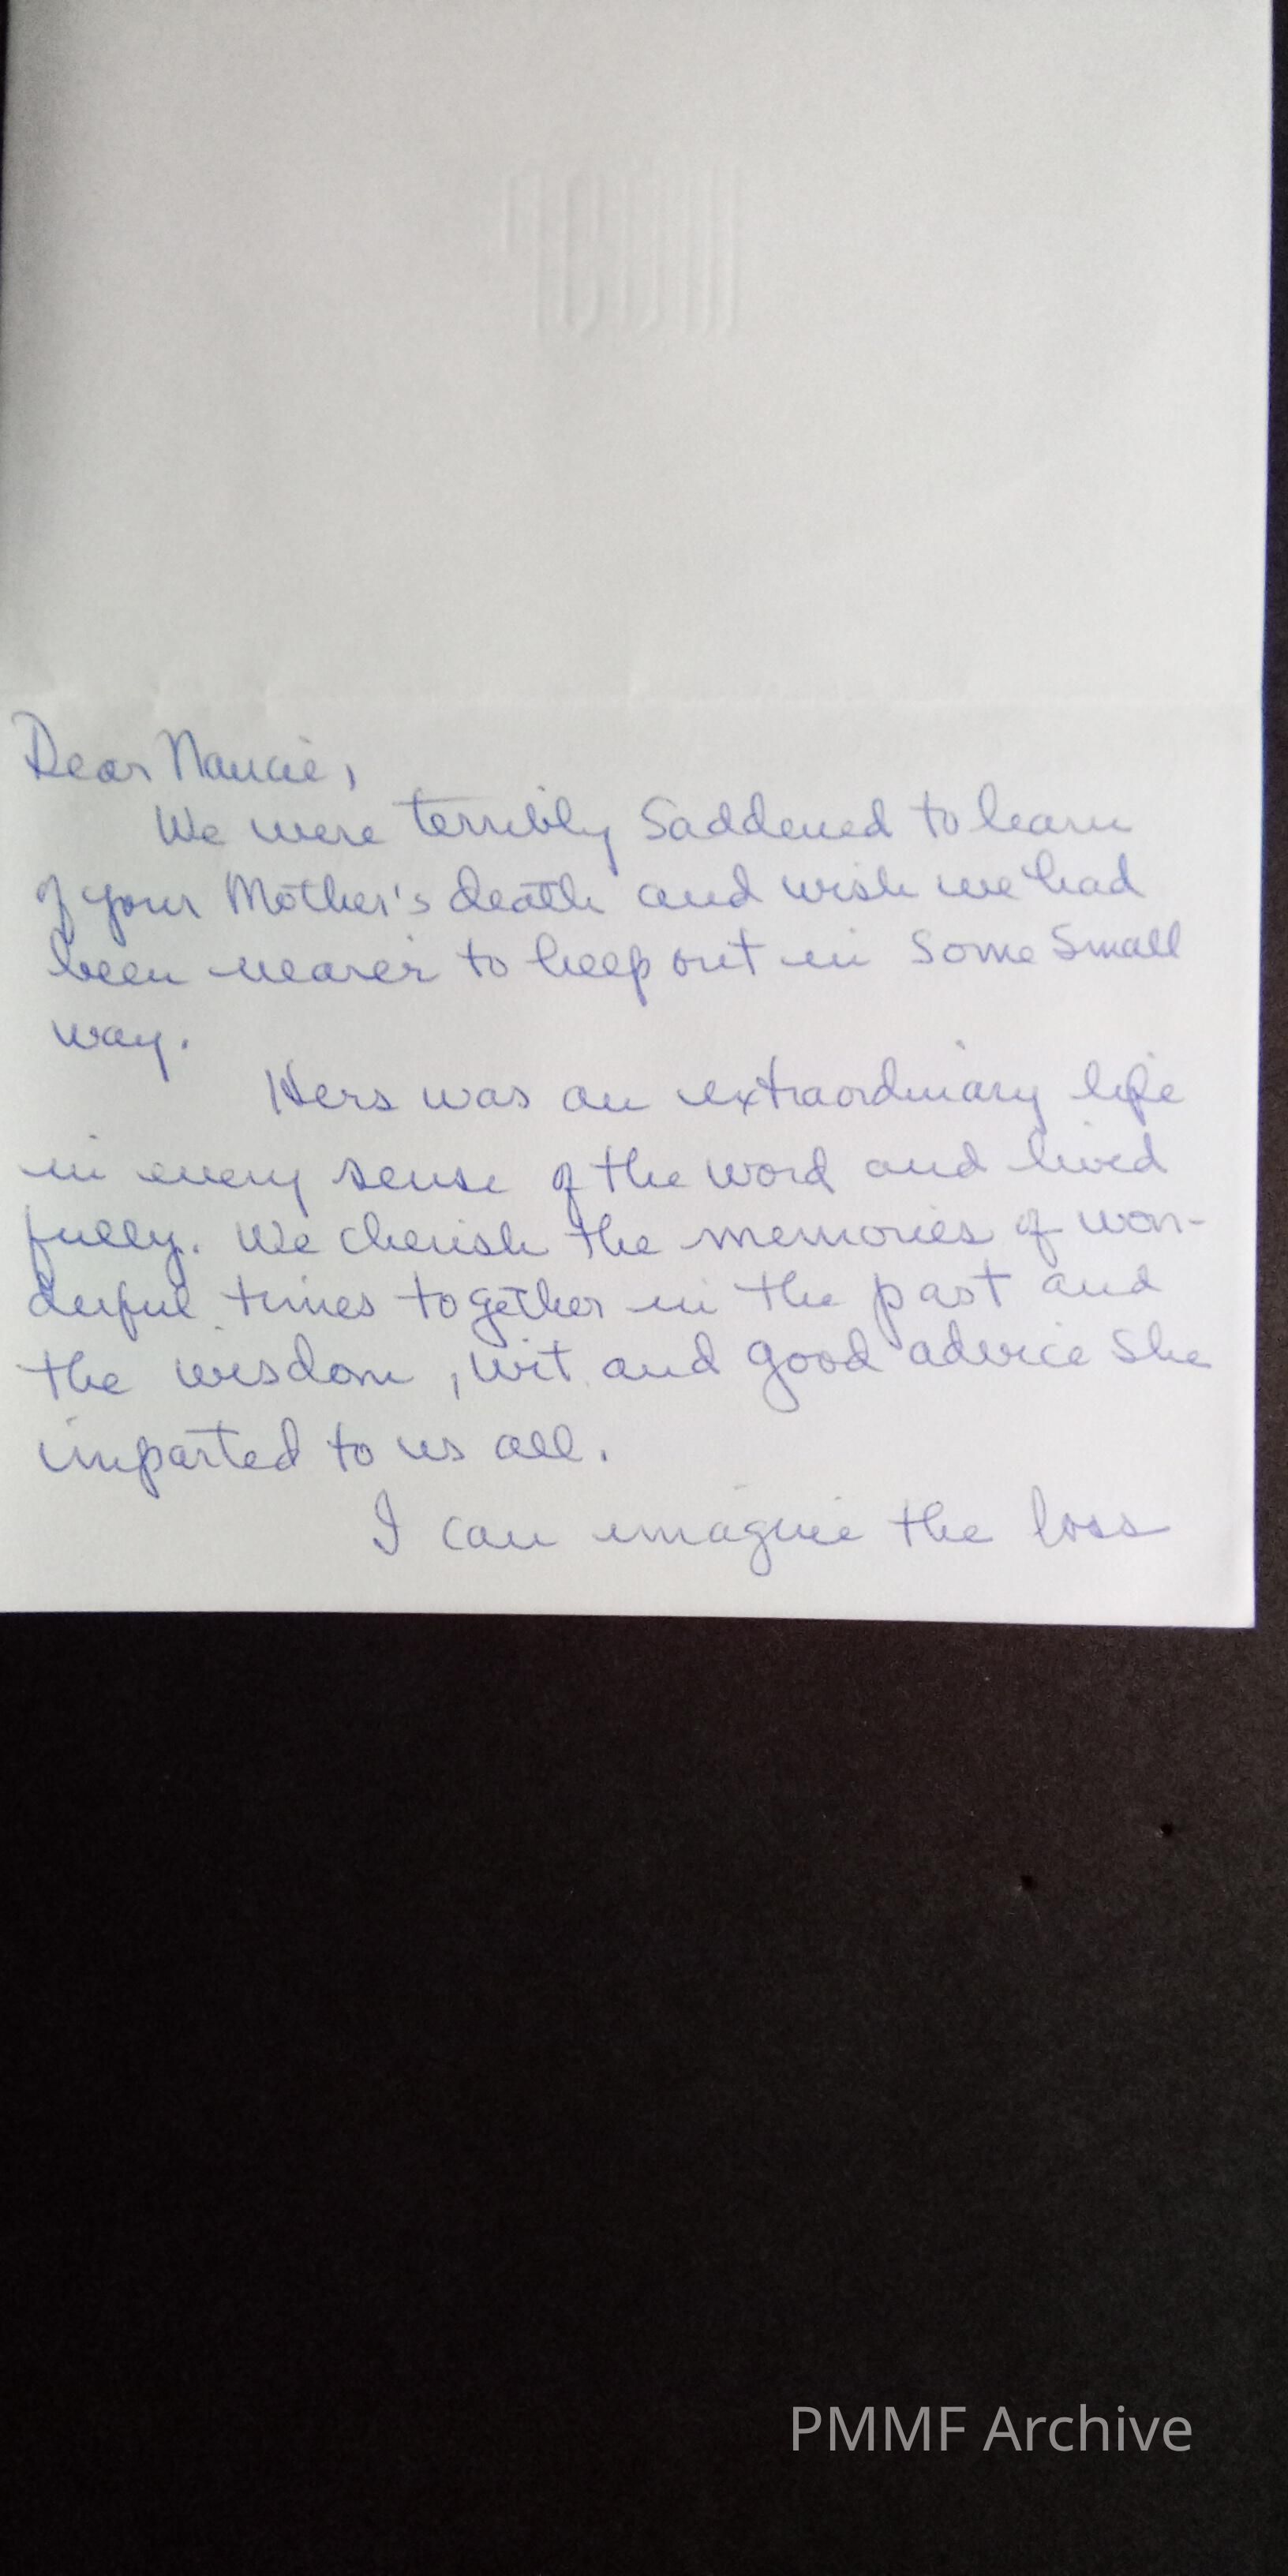 Dear Nancie,
We were terribly saddened to learn
of your Mother's death and wish we had
been nearer to help out in some small
way.
Hers was an extraordinary life
in every sense of the word and lived
fully. We cherish the memories of won-
derful times together in the past and
the wisdom, wit and good advice she
imparted to us all.
I can imagine the loss
PMMF Archive